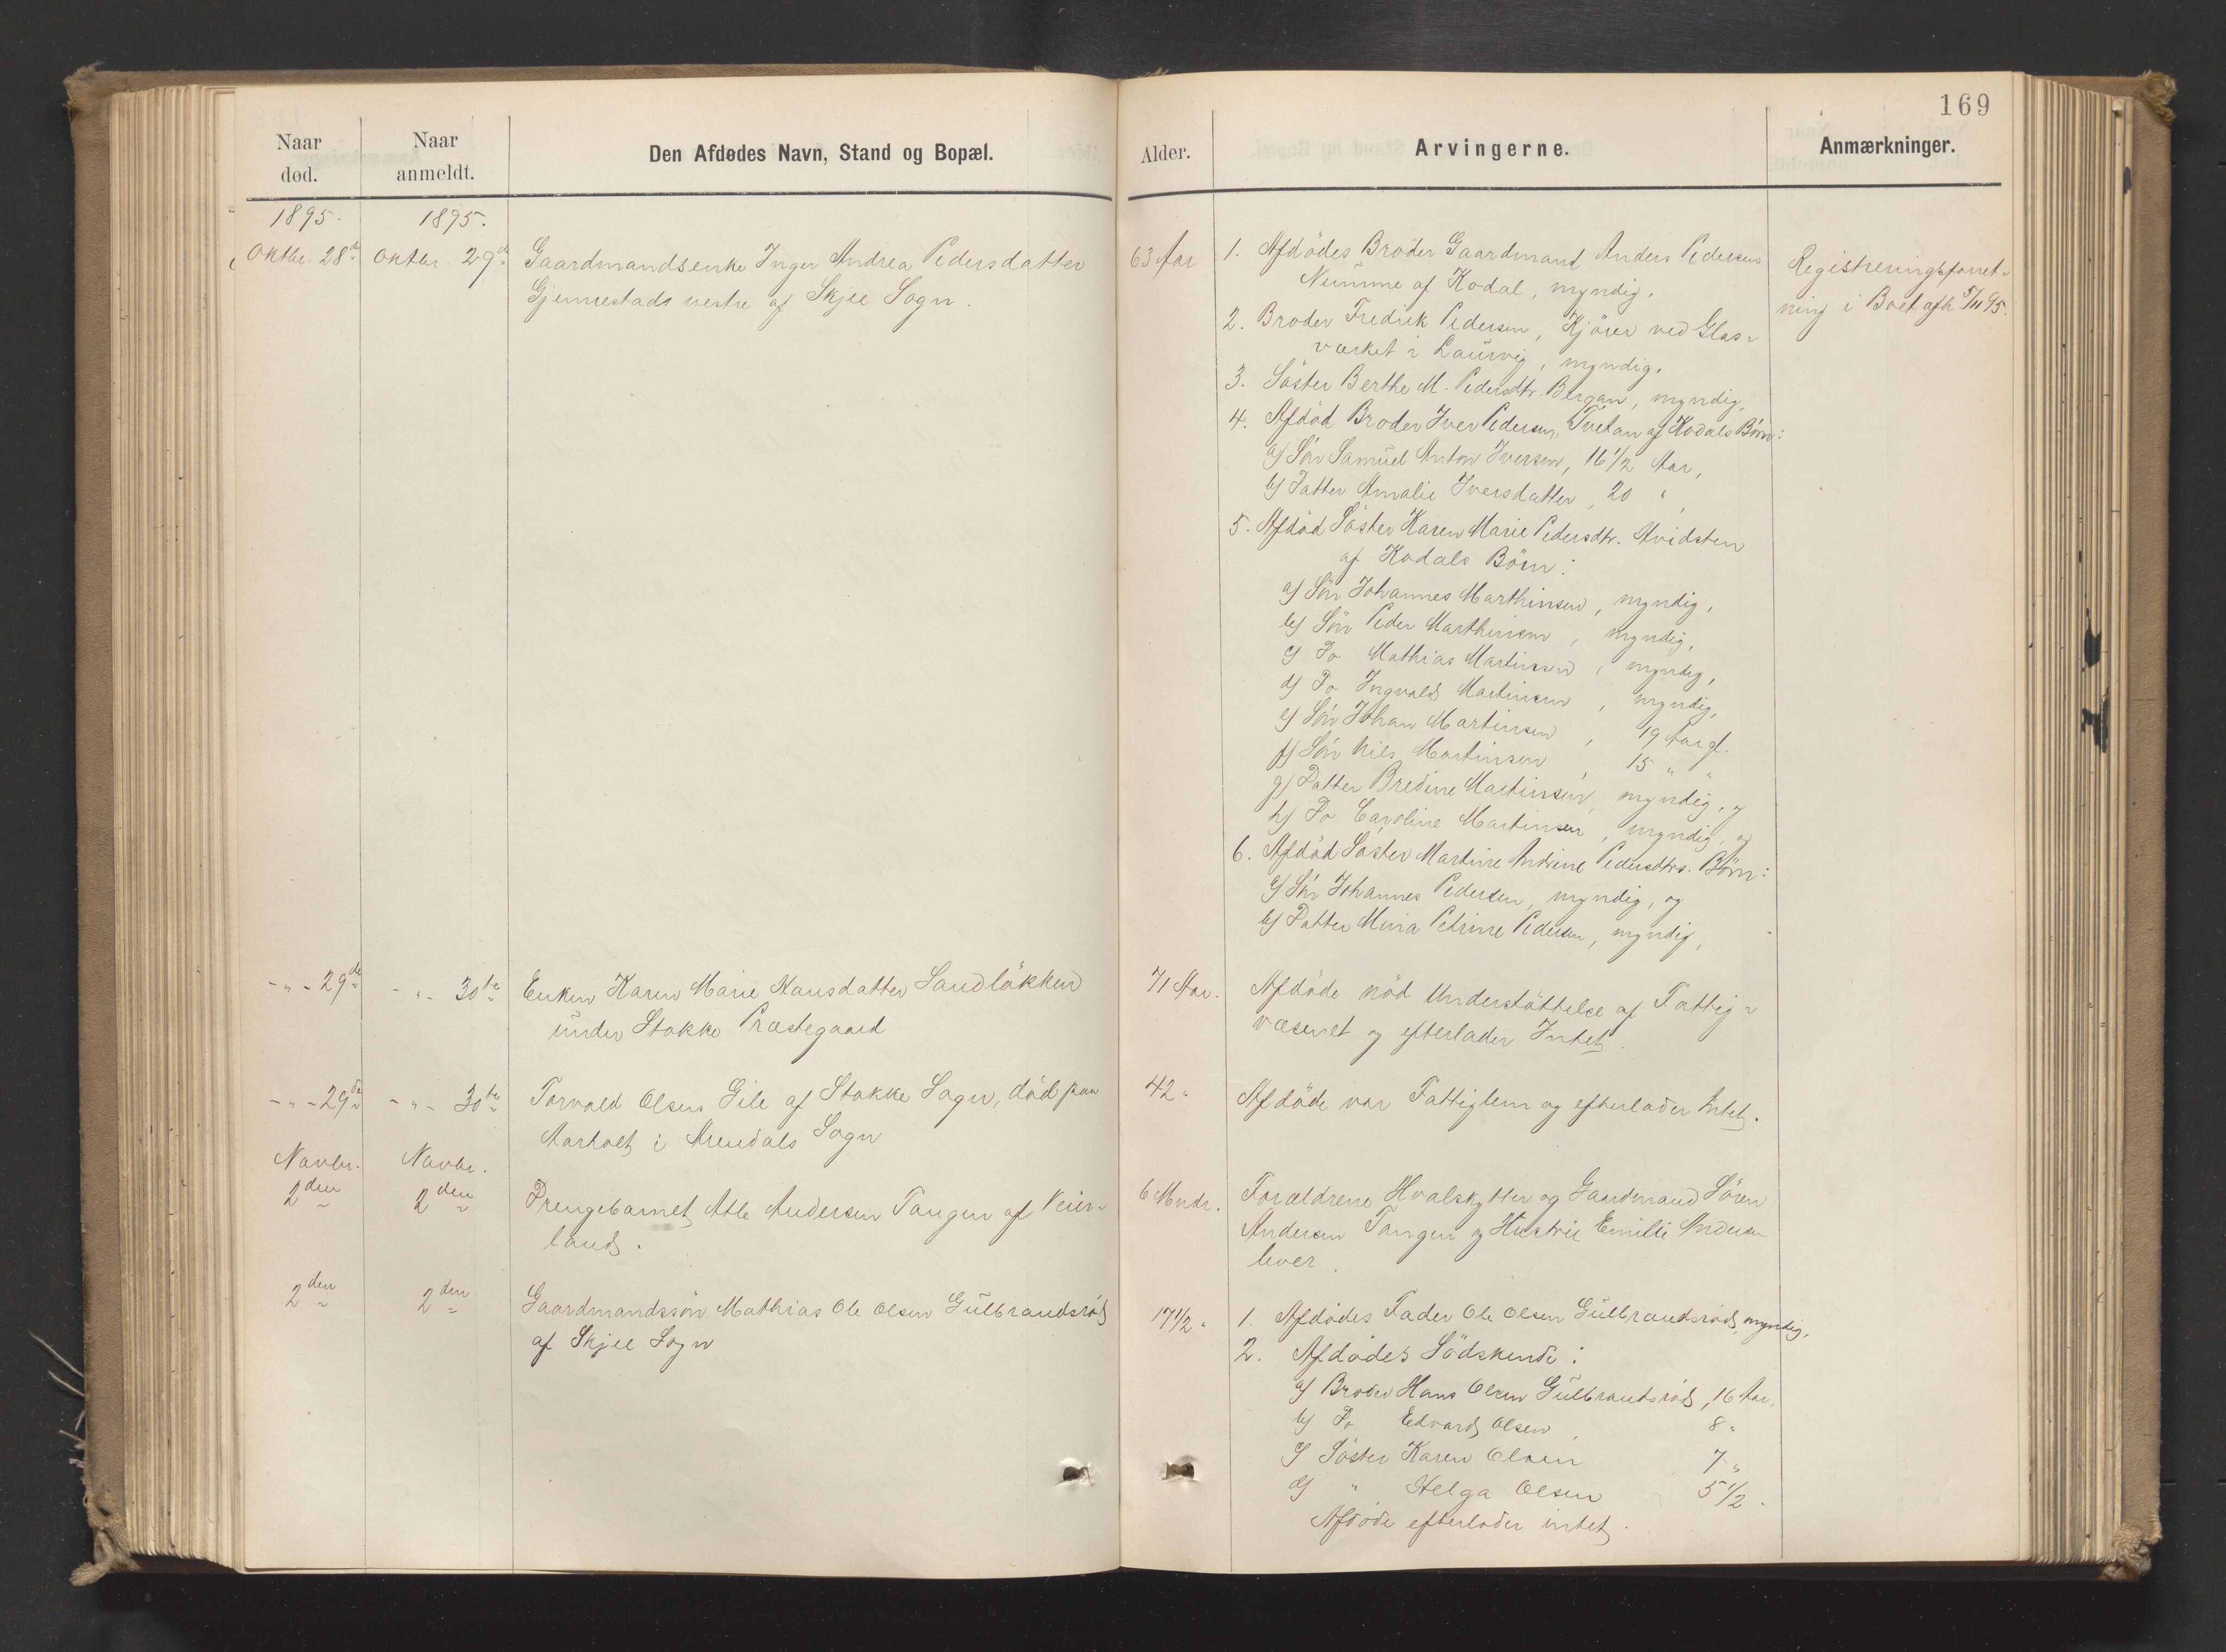 169
Naar død.
Naar anmeldt.
Den Afdødes Navn, Stand og Bopæl.
Alder.
Arvingerne.
Anmærkninger.
1895.
1895.
Oktbr. 28de
Oktbr. 29de
Gaardmandsenke Inger Andrea Pedersdatter
Gjennestads vestre af Skjee Sogn.
63 Aar
1. Afdödes Broder Gaardmand Anders Pedersen
Numme af Kodal, myndig.
2. Broder Fredrik Pedersen, Kjører ved Glas-
værket i Laurvig, myndig.
3. Söster Berthe M. Pedersdtr. Bergan, myndig,
4. Afdöd Broder Iver Pedersen Tvetan af Kodals Börn:
a) Sön Samuel Anton Iversen, 16 1/2 Aar,
b) Datter Amalie Iversdatter, 20 "
5. Afdöd Söster Karen Marie Pedersdtr. Hvidsten
af Kodals Börn:
a) Sön Johannes Marthinsen, myndig,
b) Sön Peder Marthinsen, myndig,
c) Do Mathias Martinsen, myndig,
d) Do Ingvald Martinsen, myndig,
e) Sön Johan Martinsen, 19 Aar gl.
f) Sön Nils Martinsen, 15 " "
g) Datter Bredine Martinsen, myndig, og
h) Do Caroline Martinsen, myndig, og
6. Afdöd Söster Martine Andrine Pedersdtrs. Börn:
a) Sön Johannes Pedersen, myndig, og
b) Datter Mina Petrine Pedersen, myndig,
Registreringsforret-
ning i Boet afh. 5/11 95.
- " - 29de
- " - 30te
Enken Karen Marie Hansdatter Sandlökken
under Stokke Præstegaard
71 Aar.
Afdöde nöd Understöttelse af Fattig-
væsenet og efterlader Intet.
- " - 29de
- " - 30te
Torvald Olsen Gile af Stokke Sogn, död paa
Aarholt i Arendals Sogn
42 "
Afdöde var Fattiglem og efterlader Intet.
Novbr.
Novbr.
2den
2den
Drengebarnet Atle Andersen Tangen af Veier-
land.
6 Mndr.
Forældrene Hvalskytter og Gaardmand Sören
Andersen Tangen og Hustru Emilie Andersen
lever.
2den
2den
Gaardmandssön Mathias Ole Olsen Gulbrandsröd
af Skjee Sogn
17 1/2 "
1. Afdödes Fader Ole Olsen Gulbrandsröd, myndig.
2. Afdödes Södskende:
a) Broder Hans Olsen Gulbrandsröd, 16 Aar.
b) Do Edvard Olsen, 8 "
c) Söster Karen Olsen 7 "
d) " Helga Olsen 5 1/2 "
Afdöde efterlader intet.